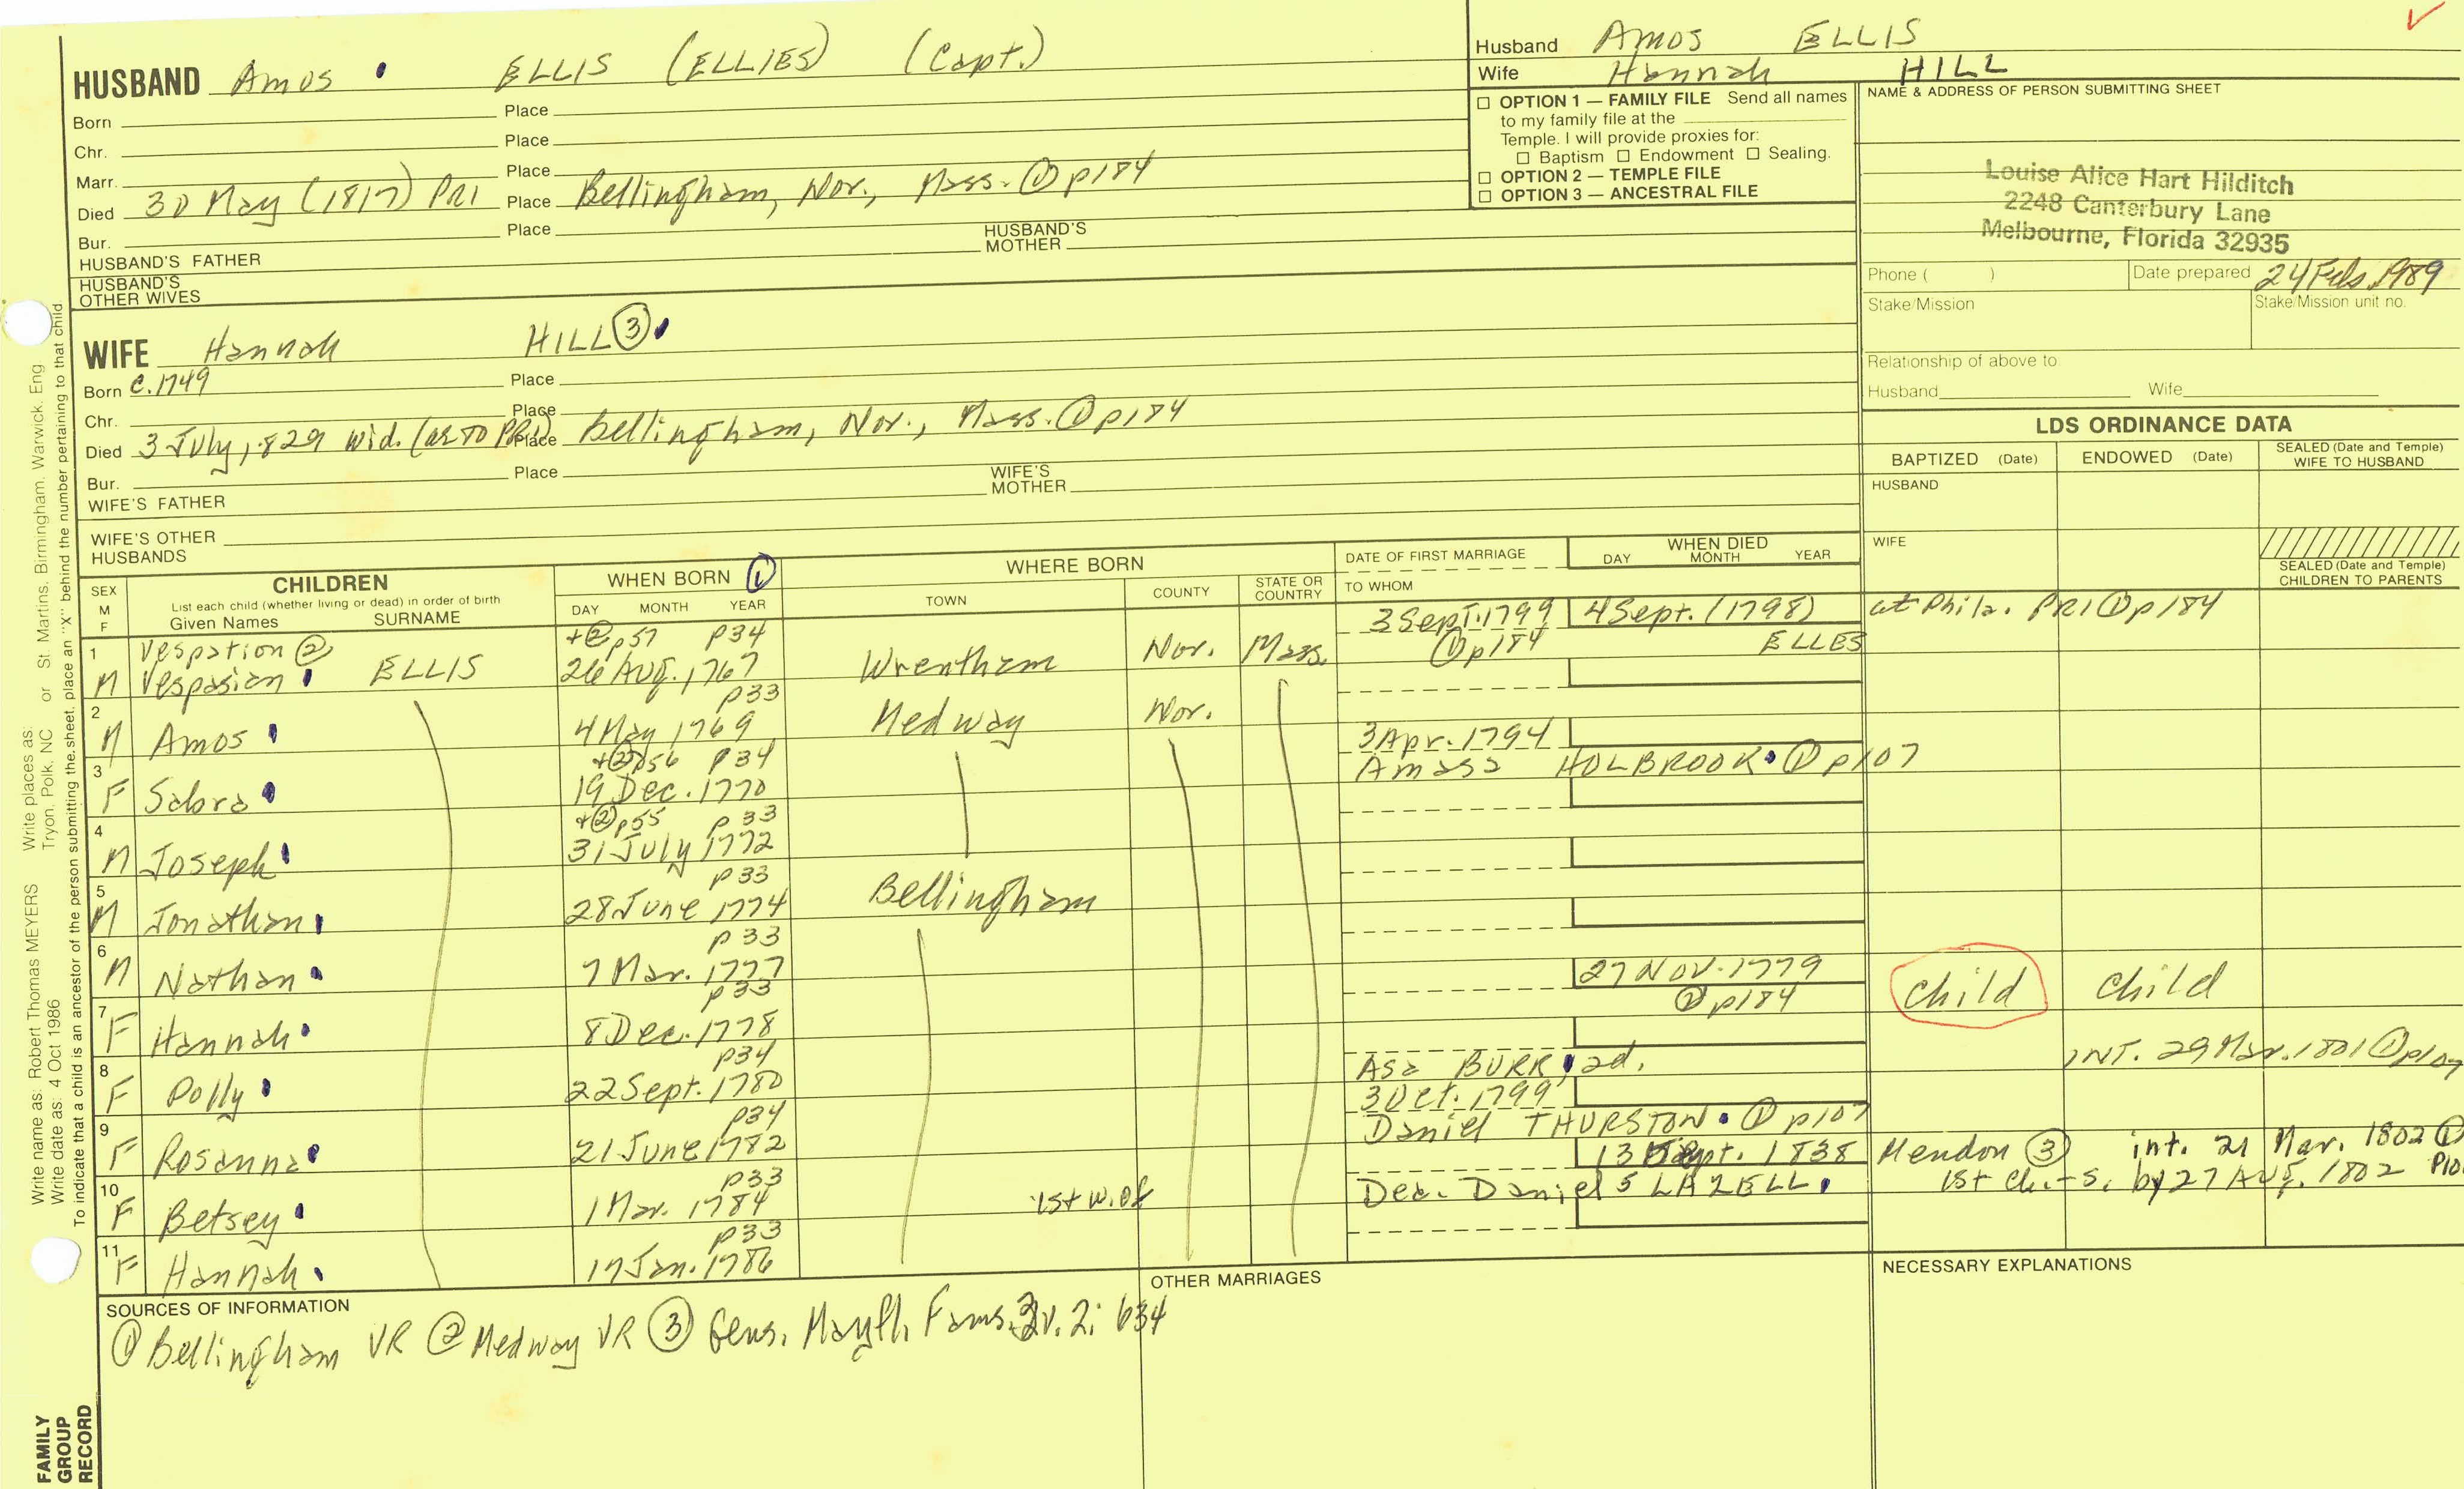 HUSBAND Amos ELLIS (ELLIES) (Capt.)
Born Place
Chr. Place
Marr. Place
Died 30 May (1817) PR1 Place Bellingham, Nor., Mass. ① p184
Bur. Place
HUSBAND'S FATHER HUSBAND'S MOTHER
HUSBAND'S OTHER WIVES
WIFE Hannah HILL ③
Born c.1749 Place
Chr. Place
Died 3 July 1829 wid. (as to PR1) Place Bellingham, Nor., Mass. ① p184
Bur. Place
WIFE'S FATHER WIFE'S MOTHER
WIFE'S OTHER HUSBANDS
Husband Amos ELLIS
Wife Hannah HILL
☐ OPTION 1 — FAMILY FILE Send all names
to my family file at the
Temple. I will provide proxies for:
☐ Baptism ☐ Endowment ☐ Sealing.
☐ OPTION 2 — TEMPLE FILE
☐ OPTION 3 — ANCESTRAL FILE
NAME & ADDRESS OF PERSON SUBMITTING SHEET
Louise Alice Hart Hilditch
2248 Canterbury Lane
Melbourne, Florida 32935
Phone ( ) Date prepared 24 Feb. 1989
Stake/Mission Stake/Mission unit no.
Relationship of above to
Husband Wife
LDS ORDINANCE DATA
BAPTIZED (Date) ENDOWED (Date) SEALED (Date and Temple) WIFE TO HUSBAND
HUSBAND
WIFE
SEALED (Date and Temple) CHILDREN TO PARENTS
SEX M F
CHILDREN
List each child (whether living or dead) in order of birth
Given Names SURNAME
WHEN BORN ①
DAY MONTH YEAR
WHERE BORN
TOWN COUNTY STATE OR COUNTRY
DATE OF FIRST MARRIAGE
TO WHOM
WHEN DIED
DAY MONTH YEAR
1 Vespation ② +② p57 p34 3 Sept. 1799 4 Sept. (1798) at Phila. PR1 ① p184
M Vespasian ELLIS 26 Aug. 1767 Wrentham Nor. Mass. ① p184 ELLES
2 p33
M Amos 4 May 1769 Medway Nor.
3 +② p56 p34 3 Apr. 1794
F Sabra 19 Dec. 1770 Amasa HOLBROOK ① p107
4 +② p55 p33
M Joseph 31 July 1772
5 p33
M Jonathan 28 June 1774 Bellingham
6 p33
M Nathan 7 Mar. 1777
7 p33 27 Nov. 1779
F Hannah 8 Dec. 1778 ① p184 child child
8 p34
F Polly 22 Sept. 1780 Asa BURR, 2d. INT. 29 Mar. 1801 ① p107
9 p34 3 Oct. 1799
F Rosanna 21 June 1782 Daniel THURSTON ① p107
10 p33 13 Sept. 1838 Mendon ③ int. 21 Mar. 1802 ①
F Betsey 1 Mar. 1784 1st w. of Dea. Daniel 5 LAZELL, 1st ch.-s. by 27 Aug. 1802 p10
11 p33
F Hannah 17 Jan. 1786
SOURCES OF INFORMATION
① Bellingham VR ② Medway VR ③ Gens. Mayfl. Fams. v. 2: 634
OTHER MARRIAGES
NECESSARY EXPLANATIONS
Write name as: Robert Thomas MEYERS Write places as: or St. Martins, Birmingham, Warwick, Eng
Write date as: 4 Oct 1986 Tryon, Polk, NC
To indicate that a child is an ancestor of the person submitting the sheet, place an "X" behind the number pertaining to that child
FAMILY
GROUP
RECORD